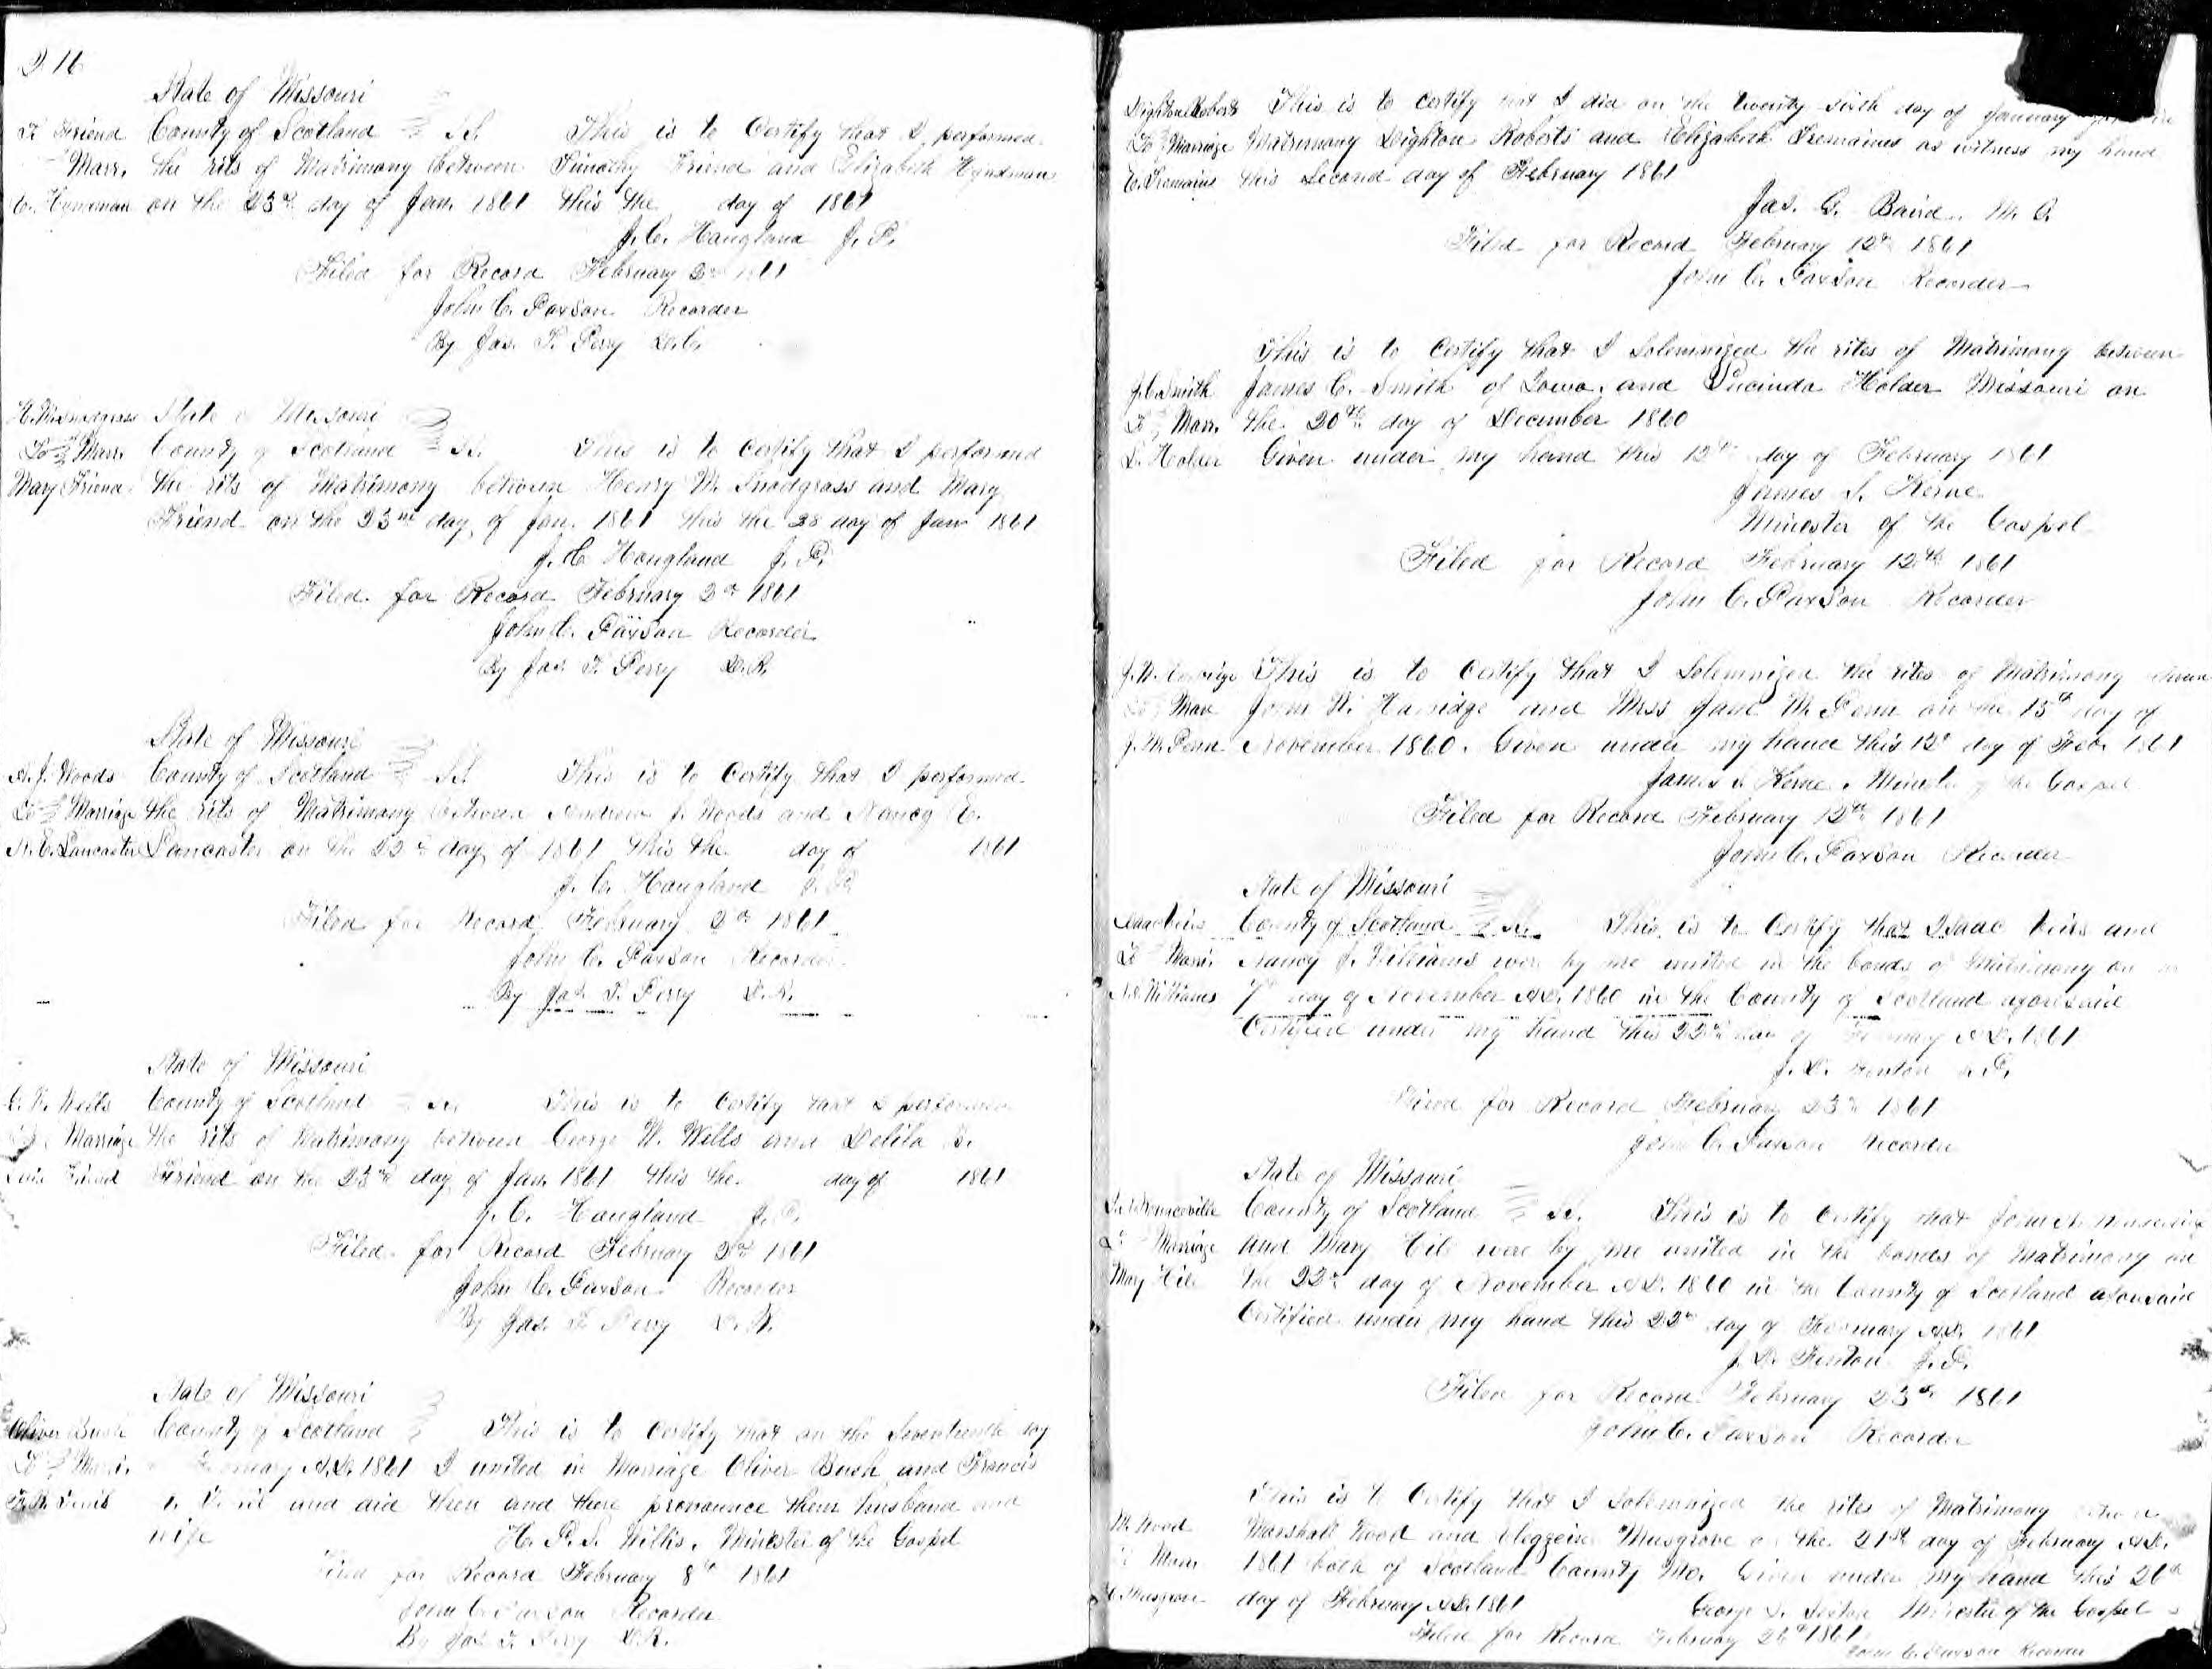 216
State of Missouri
T. Friend County of Scotland } SS. This is to Certify that I performed
To Marr. the rits of Matrimony between Timothy Friend and Elizabeth Hyndman
E. Hyndman on the 23rd day of Jan. 1861 this the day of 1861
J. C. Hougland J. P.
Filed for Record February 2nd 1861
John C. Paxson Recorder
By Jas. T. Perry D.C.
H. M. Snodgrass State of Missouri
To Marr. County of Scotland } SS. This is to Certify that I performed
Mary Friend the rits of Matrimony between Henry M. Snodgrass and Mary
Friend on the 23rd day of Jan. 1861 this the 28 day of Jan 1861
J. C. Hougland J. P.
Filed for Record February 2nd 1861
John C. Paxson Recorder
By Jas. T. Perry D.R.
State of Missouri
A. J. Woods County of Scotland } SS. This is to Certify that I performed
To Marriage the rits of Matrimony between Andrew J. Woods and Nancy E.
N. E. Lancaster Lancaster on the 22nd day of 1861 this the day of 1861
J. C. Hougland J. P.
Filed for Record February 2nd 1861
John C. Paxson Recorder
By Jas. T. Perry D.R.
State of Missouri
G. W. Wells County of Scotland } SS. This is to Certify that I performed
To Marriage the rits of Matrimony between George W. Wells and Delila B.
Friend Friend on the 23rd day of Jan. 1861 this the day of 1861
J. C. Hougland J. P.
Filed for Record February 2nd 1861
John C. Paxson Recorder
By Jas. T. Perry D.R.
State of Missouri
Oliver Bush County of Scotland } This is to Certify that on the Seventeenth day
To Marri. February A.D. 1861 I united in Marriage Oliver Bush and Francis
and did then and there pronounce them husband and
wife H. P. S. Willis, Minister of the Gospel
Filed for Record February 8th 1861
John C. Paxson Recorder
By Jas. T. Perry D.R.
Dighton Roberts This is to Certify that I did on the twenty sixth day of January
To Marriage Matrimony Dighton Roberts and Elizabeth Tremaines as witness my hand
E. Tremains this Second day of February 1861
Jas. G. Baird. M. G.
Filed for Record February 12th 1861
John C. Paxson Recorder
This is to Certify that I Solemnized the rites of Matrimony between
J. C. Smith James C. Smith of Iowa, and Lucinda Holder Missouri on
To Marr. the 20th day of December 1860
L. Holder Given under my hand this 12th day of February 1861
James S. Kerne
Minester of the Gospel
Filed for Record February 12th 1861
John C. Paxson Recorder
This is to Certify that I Solemnized the rites of Matrimony between
To Marr John W. Harridge and Miss Jane M. Penn on the 15th day of
J. M. Penn November 1860. Given under my hand this 12th day of Feb. 1861
James S. Kerne, Minister of the Gospel
Filed for Record February 12th 1861
John C. Paxson Recorder
State of Missouri
County of Scotland } SS. This is to Certify that Isaac and
To Marri. Nancy J. Williams were by me united in the bonds of Matrimony on
Williams 7th day of November A.D. 1860 in the County of Scotland aforesaid
Certified under my hand this 22nd day of February A.D. 1861
J. D. Fenton J. P.
Filed for Record February 23rd 1861
John C. Paxson Recorder
State of Missouri
County of Scotland } SS. This is to Certify that John
To Marriage and Mary Hile were by me united in the bonds of Matrimony on
Mary Hile the 22nd day of November A.D. 1860 in the County of Scotland aforesaid
Certified under my hand this 22nd day of February A.D. 1861
J. D. Fenton J. P.
Filed for Record February 23rd 1861
John C. Paxson Recorder
This is to Certify that I Solemnized the rites of Matrimony between
M. Wood Marshall Wood and Musgrove on the 21st day of February A.D.
To Marr 1861 both of Scotland County Mo. Given under my hand this 26th
Musgrove day of February A.D. 1861 George Minester of the Gospel
Filed for Record February 26th 1861
John C. Paxson Recorder